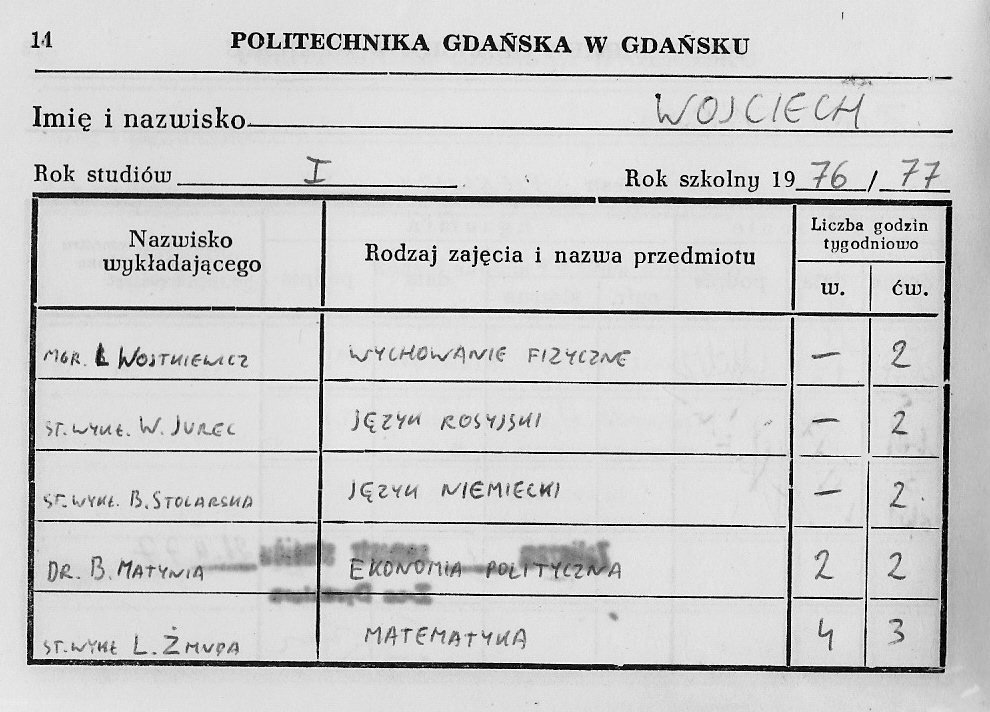 14
POLITECHNIKA GDAŃSKA W GDAŃSKU
Imię i nazwisko WOJCIECH
Rok studiów I Rok szkolny 1976/77
Nazwisko wykładającego Rodzaj zajęcia i nazwa przedmiotu Liczba godzin tygodniowo
w. ćw.
MGR. L WOJTKIEWICZ WYCHOWANIE FIZYCZNE — 2
ST. WYKŁ. W. JUREC JĘZYK ROSYJSKI — 2
ST. WYKŁ. B. STOLARSKA JĘZYK NIEMIECKI — 2
DR. B. MATYNIA EKONOMIA POLITYCZNA 2 2
ST. WYKŁ L. ŻMUDA MATEMATYKA 4 3